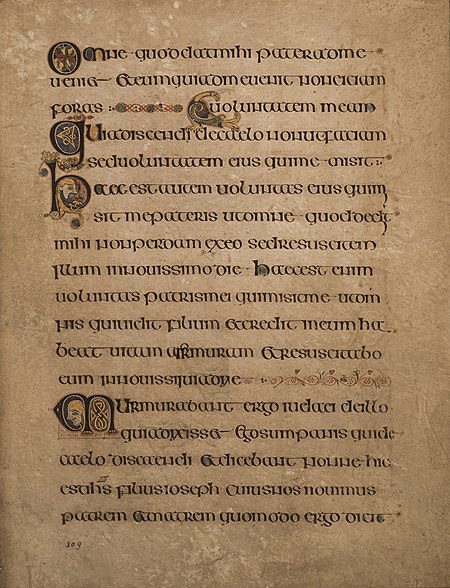 Omne quod dat mihi pater ad me
ueniet et eum qui ad me uenit non eiciam
foras uoluntatem meam
Quia discendi de caelo non ut faciam
sed uoluntatem eius qui me misit
Haec est autem uoluntas eius qui mi
sit me pateris ut omne quod dedit
mihi non perdam ex eo sed resuscitem
illum in nouissimo die haec est enim
uoluntas patris mei qui misit me ut om
nis qui uidit filium et credit in eum ha
beat uitam et resuscitabo
eum in nouissimo die
Murmurabant ergo iudaei de illo
quia dixisset ego sum panis qui de
caelo discendi et dicebant nonne hic
est ihs filius ioseph cuius nos nouimus
patrem et matrem quomodo ergo dicit
309